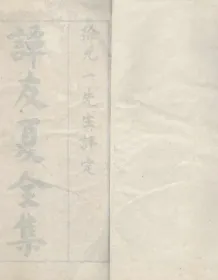 徐九一先生評定
譚友夏全集